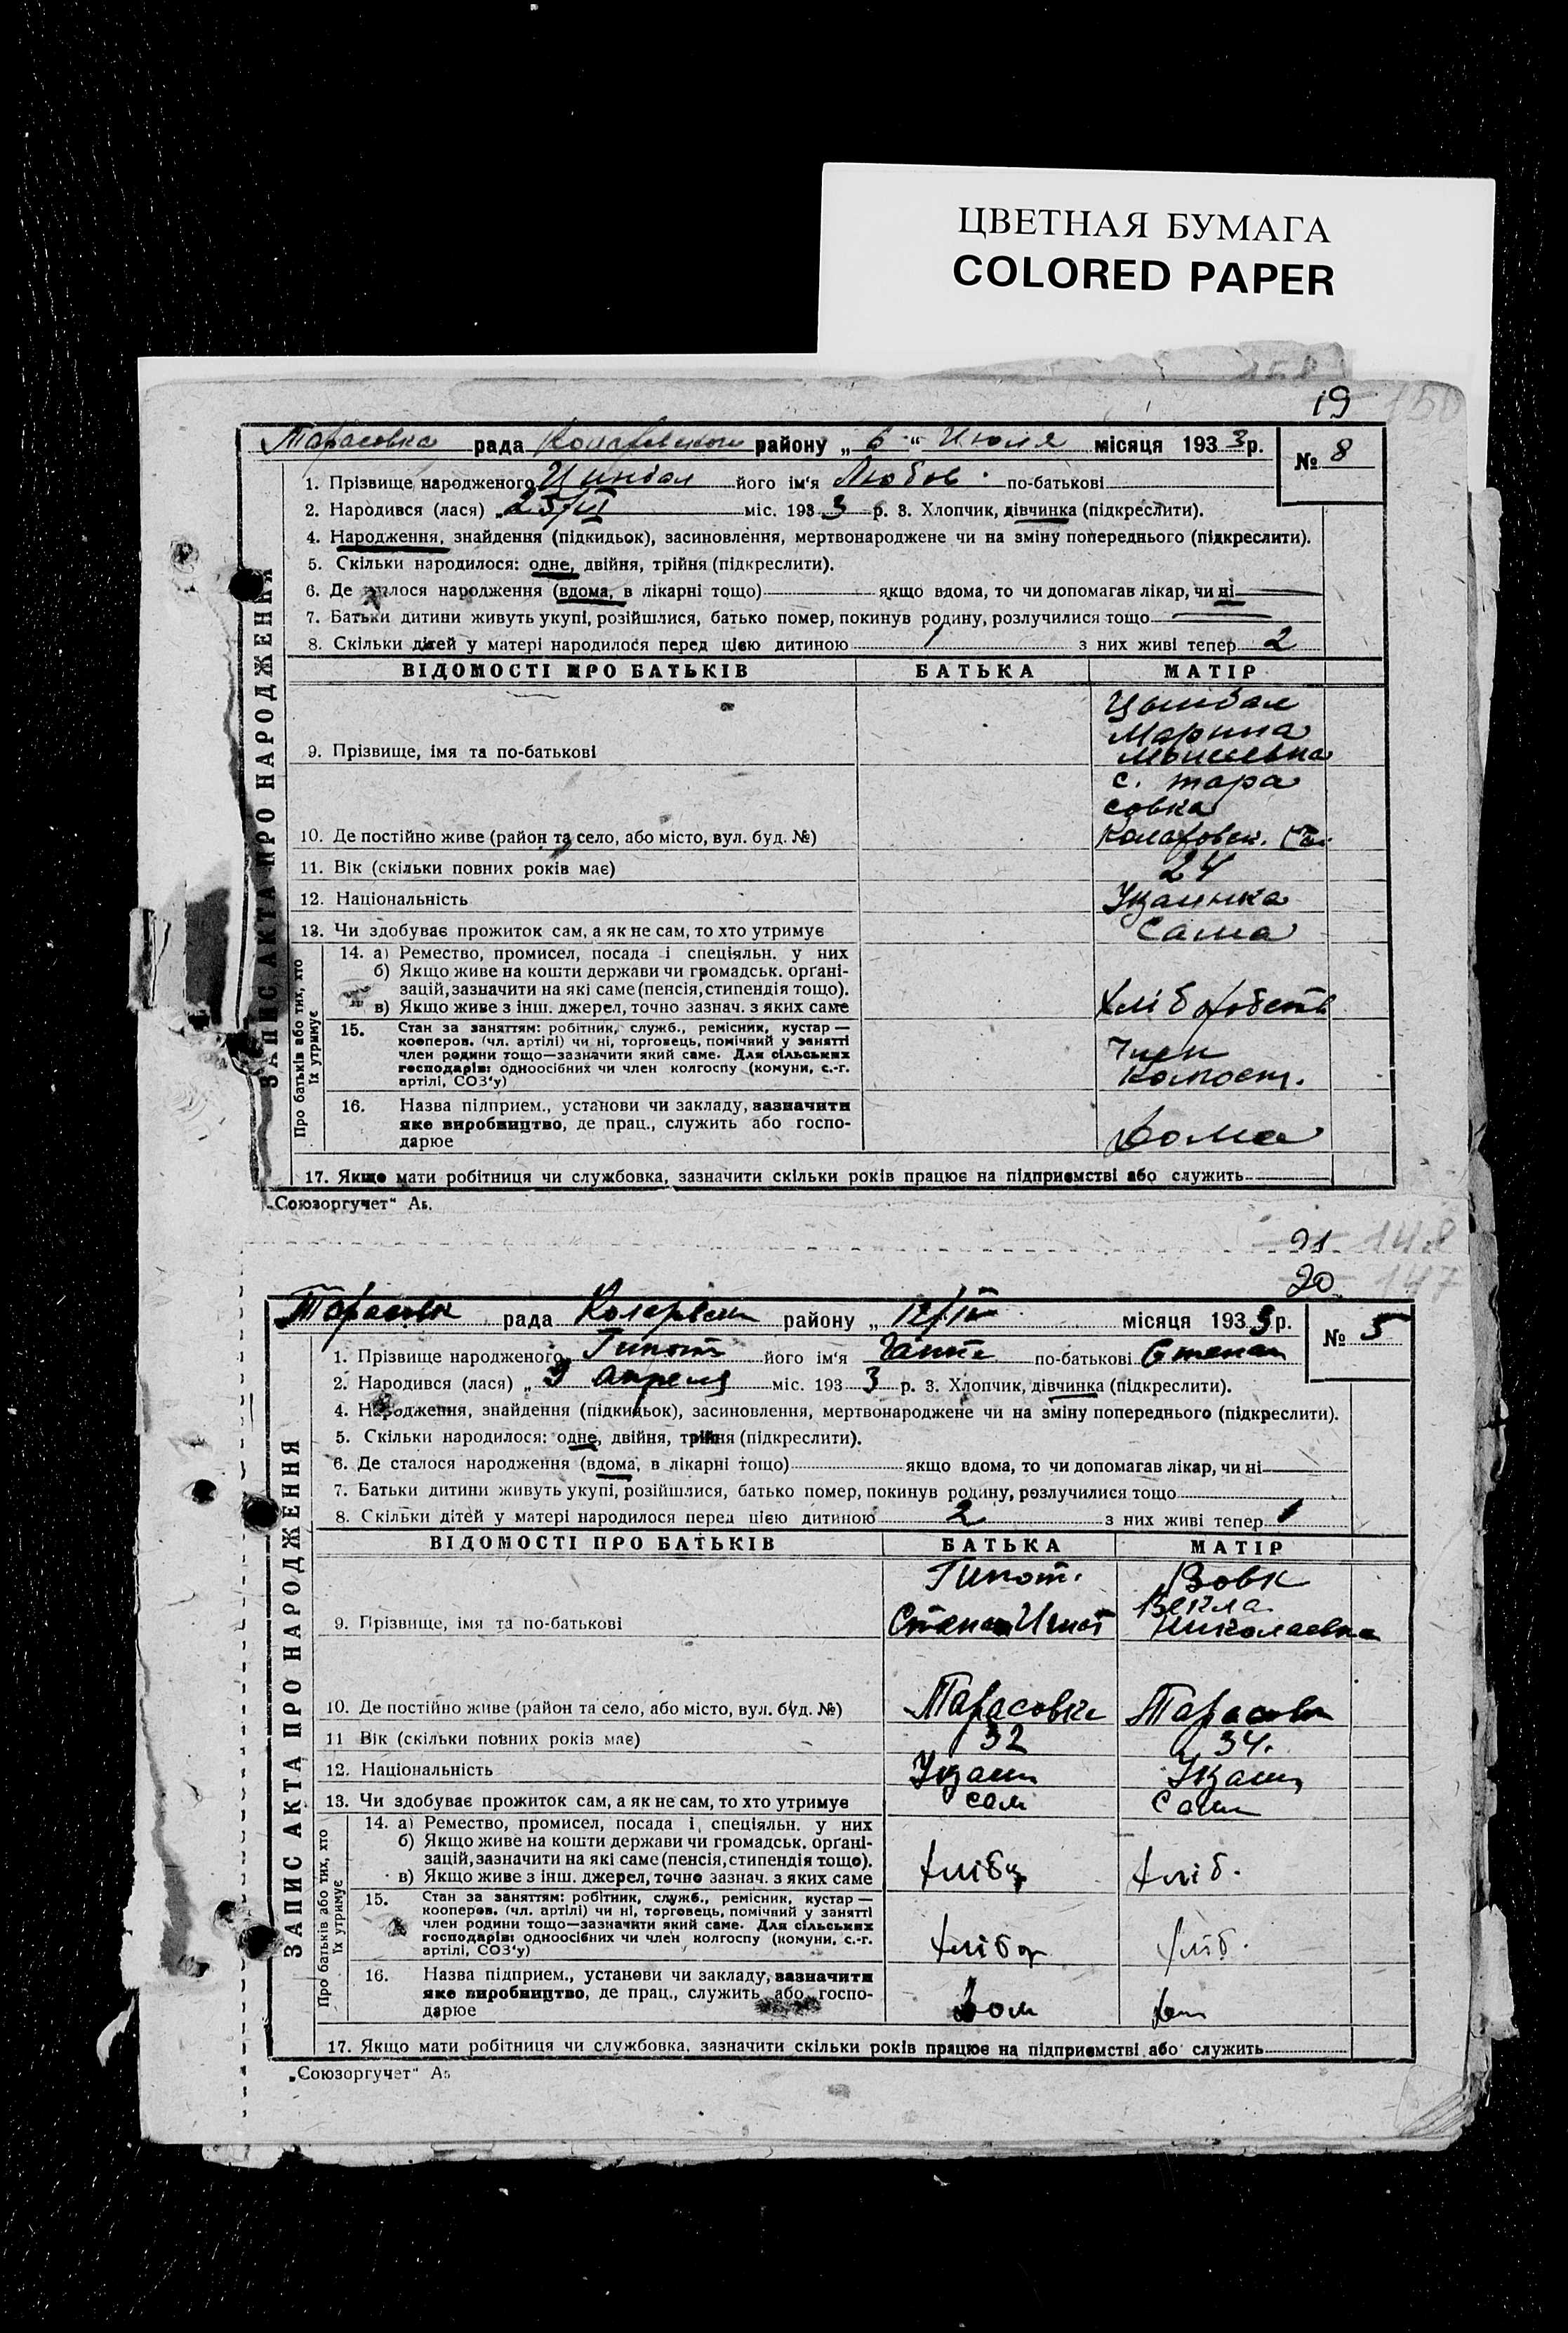 ЦВЕТНАЯ БУМАГА
COLORED PAPER
19
150
Тарасовка рада Коларовского району „ 6 “ Июля місяця 1933 р.
№ 8
ЗАПИС АКТА ПРО НАРОДЖЕННЯ
1. Прізвище народженого Цинбал його ім'я Любов по-батькові
2. Народився (лася) „ 25/VI міс. 1933 р. 3. Хлопчик, дівчинка (підкреслити).
4. Народження, знайдення (підкидьок), засиновлення, мертвонароджене чи на зміну попереднього (підкреслити).
5. Скільки народилося: одне, двійня, трійня (підкреслити).
6. Де сталося народження (вдома, в лікарні тощо) якщо вдома, то чи допомагав лікар, чи ні
7. Батьки дитини живуть укупі, розійшлися, батько помер, покинув родину, розлучилися тощо
8. Скільки дітей у матері народилося перед цією дитиною 1 з них живі тепер 2
ВІДОМОСТІ ПРО БАТЬКІВ БАТЬКА МАТІР
Цымбал
Марина
9. Прізвище, імя та по-батькові
с. Тара
совка
10. Де постійно живе (район та село, або місто, вул. буд. №) Коларовск.
11. Вік (скільки повних років має) 24
12. Національність Украинка
13. Чи здобуває прожиток сам, а як не сам, то хто утримує Сама
Про батьків або тих, хто їх утримує
14. а) Ремество, промисел, посада і спеціяльн. у них
б) Якщо живе на кошти держави чи громадськ. органі-
зацій, зазначити на які саме (пенсія, стипендія тощо).
в) Якщо живе з інш. джерел, точно зазнач. з яких саме
15. Стан за заняттям: робітник, служб., ремісник, кустар —
кооперов. (чл. артілі) чи ні, торговець, помічний у занятті
член родини тощо—зазначити який саме. Для сільських
господарів: одноосібних чи член колгоспу (комуни, с.-г.
артілі, СОЗ'у)
Член
16. Назва підприєм., установи чи закладу, зазначити
яке виробництво, де прац., служить або госпо-
дарює
Дома
17. Якщо мати робітниця чи службовка, зазначити скільки років працює на підприємстві або служить
„Союзоргучет“
21 148
20 147
рада району „ 12/IV місяця 1933 р.
№ 5
ЗАПИС АКТА ПРО НАРОДЖЕННЯ
1. Прізвище народженого його ім'я по-батькові Степан
2. Народився (лася) „ 9 Апреля міс. 1933 р. 3. Хлопчик, дівчинка (підкреслити).
4. Народження, знайдення (підкидьок), засиновлення, мертвонароджене чи на зміну попереднього (підкреслити).
5. Скільки народилося: одне, двійня, трійня (підкреслити).
6. Де сталося народження (вдома, в лікарні тощо) якщо вдома, то чи допомагав лікар, чи ні
7. Батьки дитини живуть укупі, розійшлися, батько помер, покинув родину, розлучилися тощо
8. Скільки дітей у матері народилося перед цією дитиною 2 з них живі тепер 1
ВІДОМОСТІ ПРО БАТЬКІВ БАТЬКА МАТІР
Вовк
Векла
9. Прізвище, імя та по-батькові Степан Николаевна
10. Де постійно живе (район та село, або місто, вул. буд. №) Тарасовка
11 Вік (скільки повних років має) 32 34.
12. Національність
13. Чи здобуває прожиток сам, а як не сам, то хто утримує сам сама
Про батьків або тих, хто їх утримує
14. а) Ремество, промисел, посада і спеціяльн. у них
б) Якщо живе на кошти держави чи громадськ. органі-
зацій, зазначити на які саме (пенсія, стипендія тощо).
в) Якщо живе з інш. джерел, точно зазнач. з яких саме хліб.
15. Стан за заняттям: робітник, служб., ремісник, кустар —
кооперов. (чл. артілі) чи ні, торговець, помічний у занятті
член родини тощо—зазначити який саме. Для сільських
господарів: одноосібних чи член колгоспу (комуни, с.-г.
артілі, СОЗ'у) хліб.
16. Назва підприєм., установи чи закладу, зазначити
яке виробництво, де прац., служить або госпо-
дарює Дом
17. Якщо мати робітниця чи службовка, зазначити скільки років працює на підприємстві або служить
„Союзоргучет“